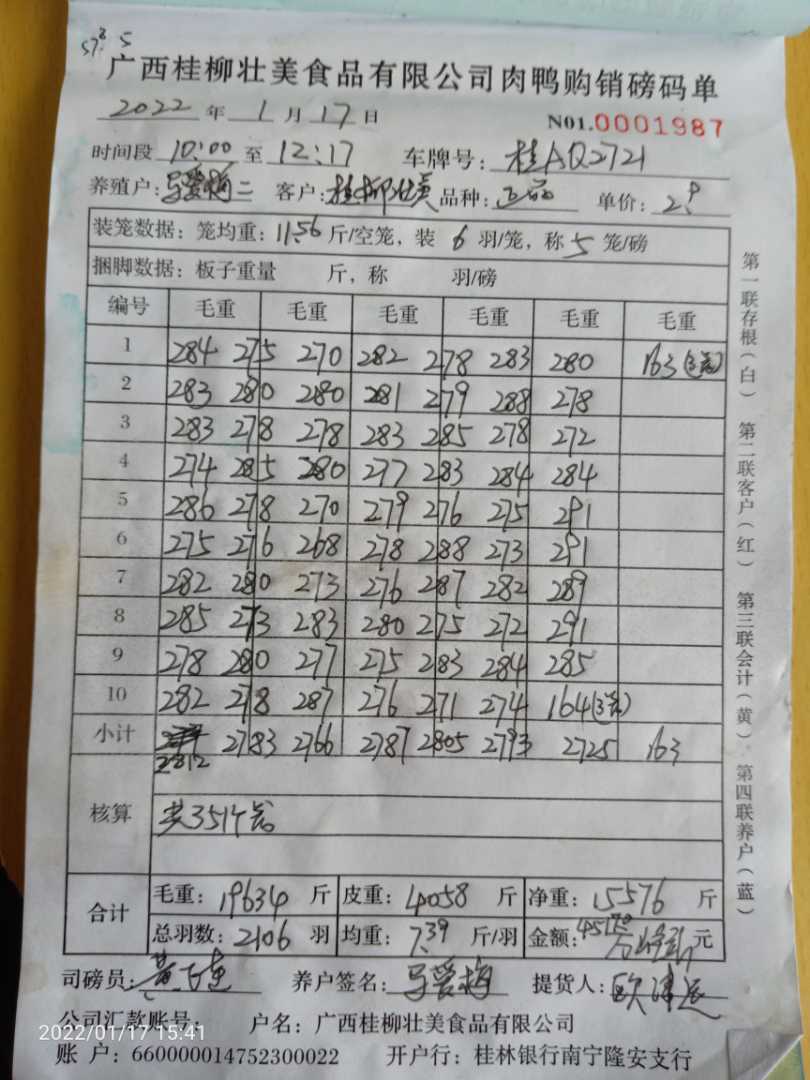 57⁸ 5
广西桂柳壮美食品有限公司肉鸭购销磅码单
2022 年 1 月 17 日
N01.0001987
时间段 10:00 至 12:17 车牌号: 桂AQ2721
养殖户: 马爱梅二 客户: 桂柳壮美 品种: 正品 单价: 2.9
装笼数据: 笼均重: 11.56 斤/空笼, 装 6 羽/笼, 称 5 笼/磅
捆脚数据: 板子重量 斤, 称 羽/磅
编号 毛重 毛重 毛重 毛重 毛重 毛重
1 284 275 270 282 278 283 280 163(3笼)
2 283 280 280 281 279 288 278
3 283 278 278 283 285 278 272
4 274 285 280 277 283 284 284
5 286 278 270 279 276 275 291
6 275 276 268 278 288 273 291
7 282 280 273 276 287 282 289
8 285 273 283 280 275 272 291
9 278 280 277 275 283 284 285
10 282 278 287 276 271 274 164(3笼)
小计 2783 2766 2787 2805 2793 2725 163
2812
核算 共351个笼
合计 毛重: 19634 斤 皮重: 4058 斤 净重: 15576 斤
总羽数: 2106 羽 均重: 7.39 斤/羽 金额: 45170 元
司磅员: 养户签名: 马爱梅 提货人:
公司汇款账号: 户名: 广西桂柳壮美食品有限公司
账 户: 660000014752300022 开户行: 桂林银行南宁隆安支行
2022/01/17 15:41
第一联存根(白) 第二联客户(红) 第三联会计(黄) 第四联养户(蓝)